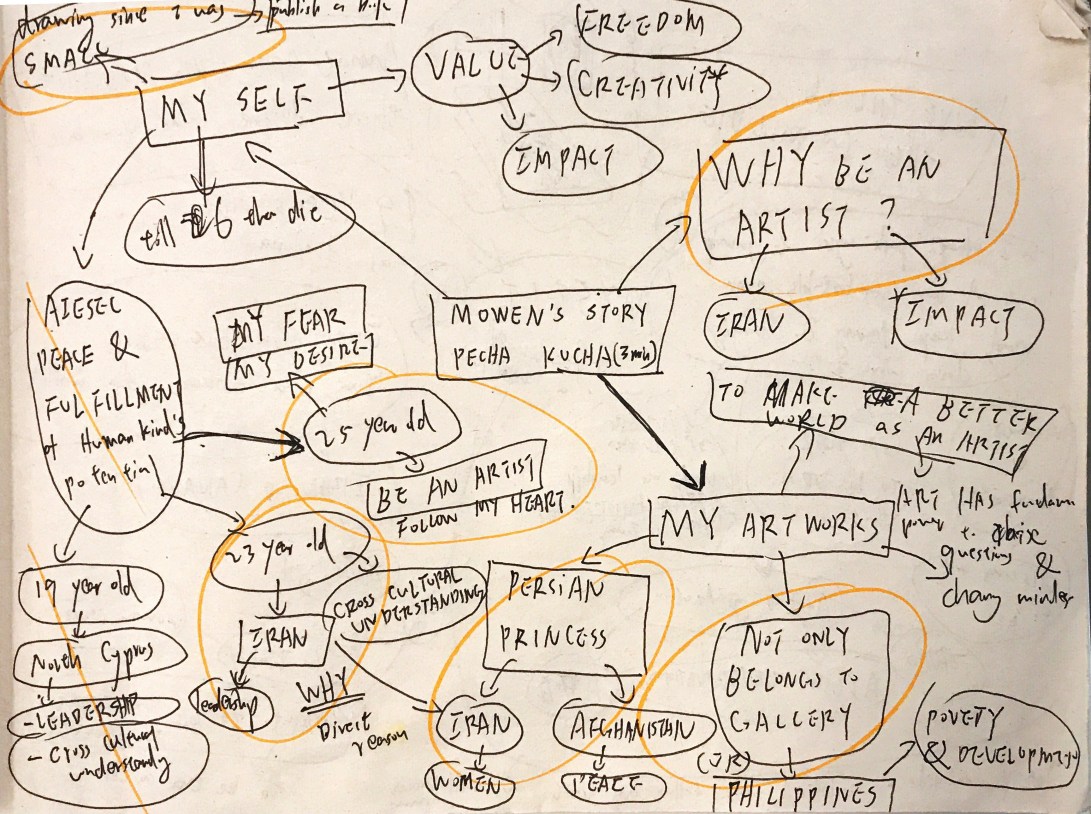 drawing since I was
SMALL
publish a
MY SELF
VALUE
FREEDOM
CREATIVITY
IMPACT
till 26 than die
WHY BE AN
ARTIST ?
IRAN
IMPACT
MOWEN'S STORY
PECHA KUCHA (3min)
AIESEC
PEACE &
FULFILLMENT
of Humankind's
potential
MY FEAR
MY DESIRE
25 year old
BE AN ARTIST
FOLLOW MY HEART.
TO MAKE A BETTER
WORLD as AN ARTIST
MY ARTWORKS
ART HAS fundam
power to raise
questions &
chang mindes
23 year old
CROSS CULTURAL
UNDERSTANDING
IRAN
leadership
WHY
Direct
reason
19 year old
North Cyprus
- LEADERSHIP
- Cross cultural
understandy
PERSIAN
PRINCESS
IRAN
WOMEN
AFGHANISTAN
PEACE
NOT ONLY
BELONGS TO
GALLERY
(JR)
PHILIPPINES
POVETY
& DEVELOPMENT